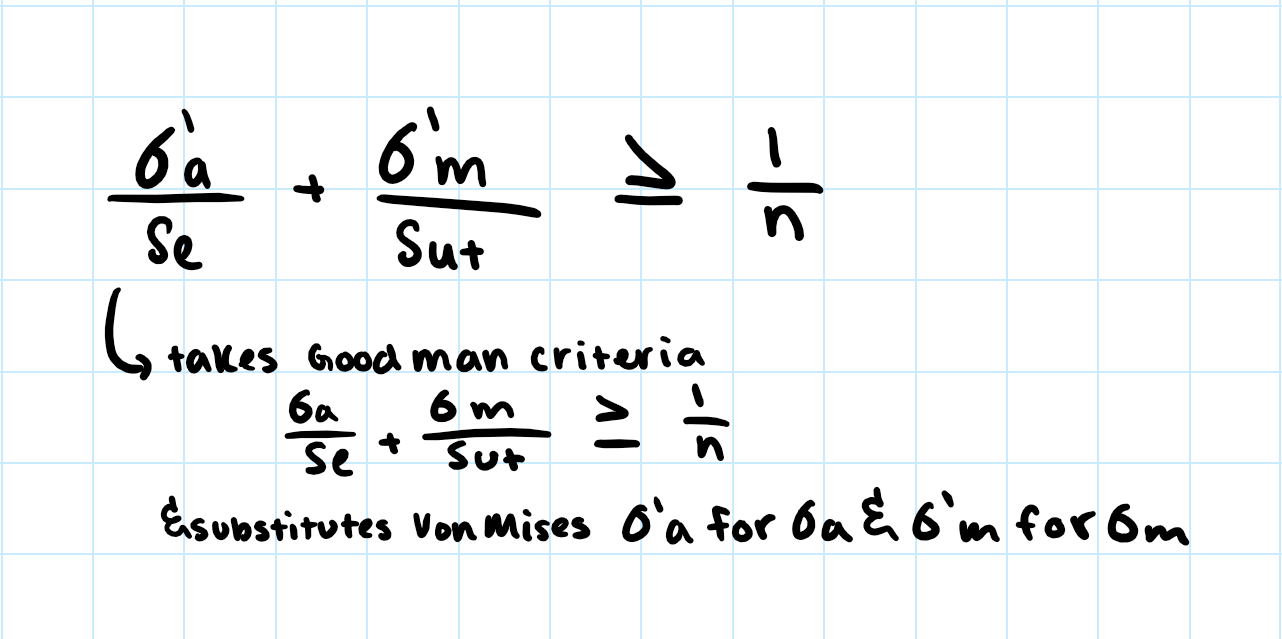 σ'a/Se + σ'm/Sut ≥ 1/n
↳ takes Goodman criteria
σa/Se + σm/Sut ≥ 1/n
& substitutes Von Mises σ'a for σa & σ'm for σm